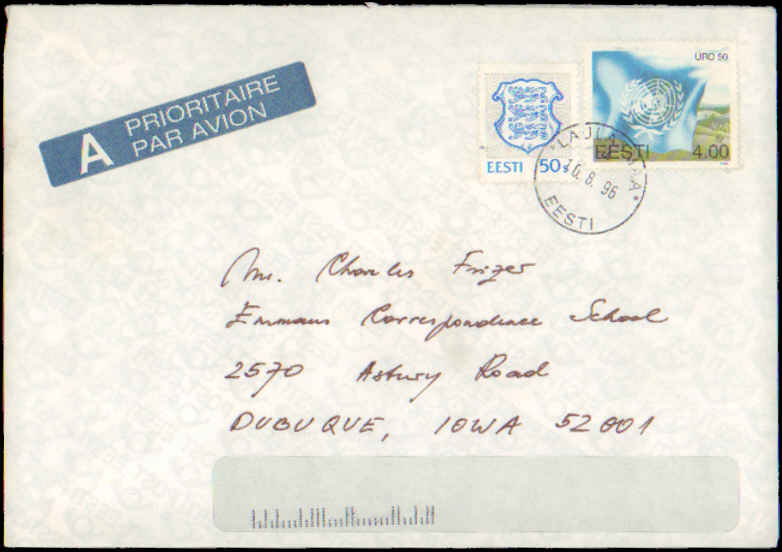 A PRIORITAIRE
PAR AVION
EESTI 50s
ÜRO 50
EESTI 4.00
16.8.96
EESTI
Mr. Charles Frizer
Emmaus Correspondence School
2570 Asbury Road
DUBUQUE, IOWA 52001